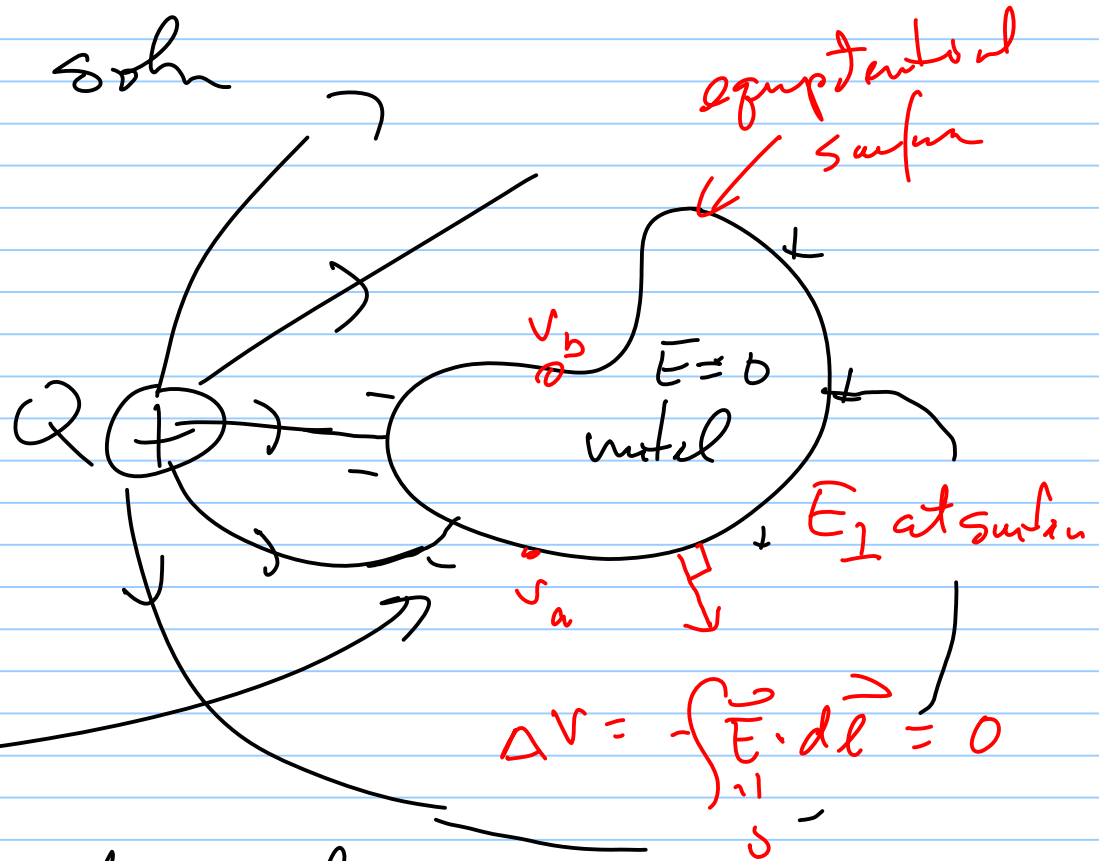 soln
equptential
surfan
V_b
E = 0
Q +
metal
E⊥ at surfan
V_a
ΔV = -∫ E · dl = 0
S